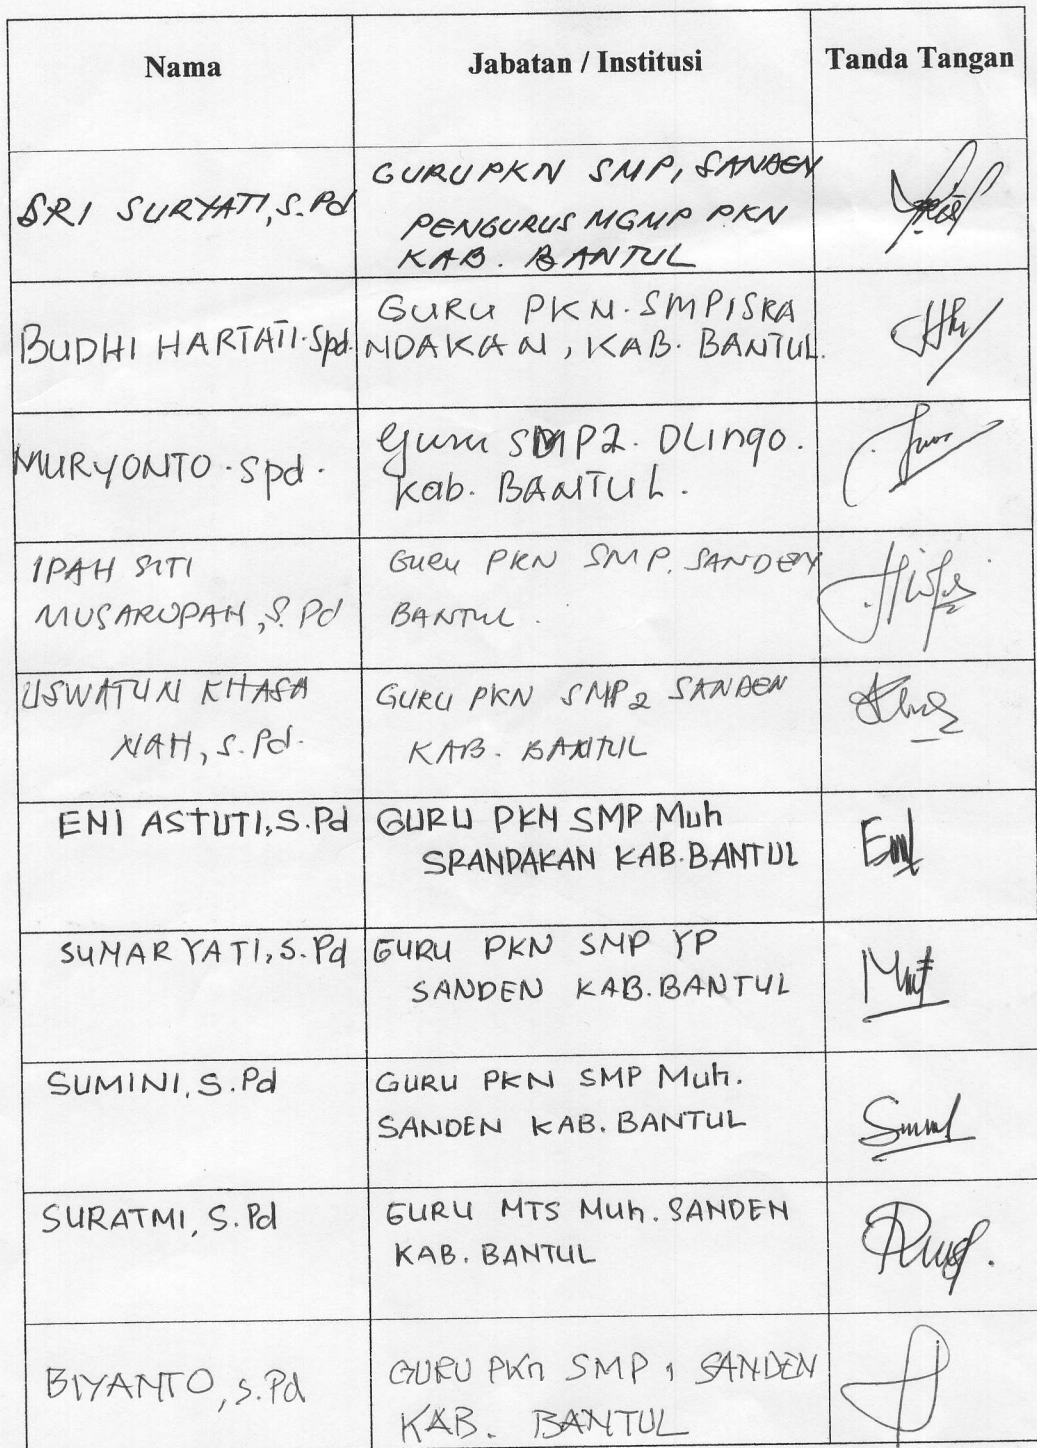 Nama Jabatan / Institusi Tanda Tangan
SRI SURYATI, S.Pd
GURU PKN SMP 1 SANDEN
PENGURUS MGMP PKN
KAB. BANTUL
BUDHI HARTATI. Spd.
GURU PKN. SMP1SRA
NDAKAN, KAB. BANTUL.
MURYONTO. Spd.
Guru SMP2. DLingo.
Kab. BANTUL.
IPAH SITI
MUSAROPAH, S.Pd
GURU PKN SMP. SANDEN
BANTUL.
USWATUN KHASA
NAH, S.Pd.
GURU PKN SMP2 SANDEN
KAB. BANTUL
ENI ASTUTI, S.Pd
GURU PKN SMP Muh
SRANDAKAN KAB.BANTUL
SUMARYATI, S.Pd
GURU PKN SMP YP
SANDEN KAB.BANTUL
SUMINI, S.Pd
GURU PKN SMP Muh.
SANDEN KAB. BANTUL
SURATMI, S.Pd
GURU MTS Muh. SANDEN
KAB. BANTUL
BIYANTO, S.Pd
GURU PKn SMP 1 SANDEN
KAB. BANTUL